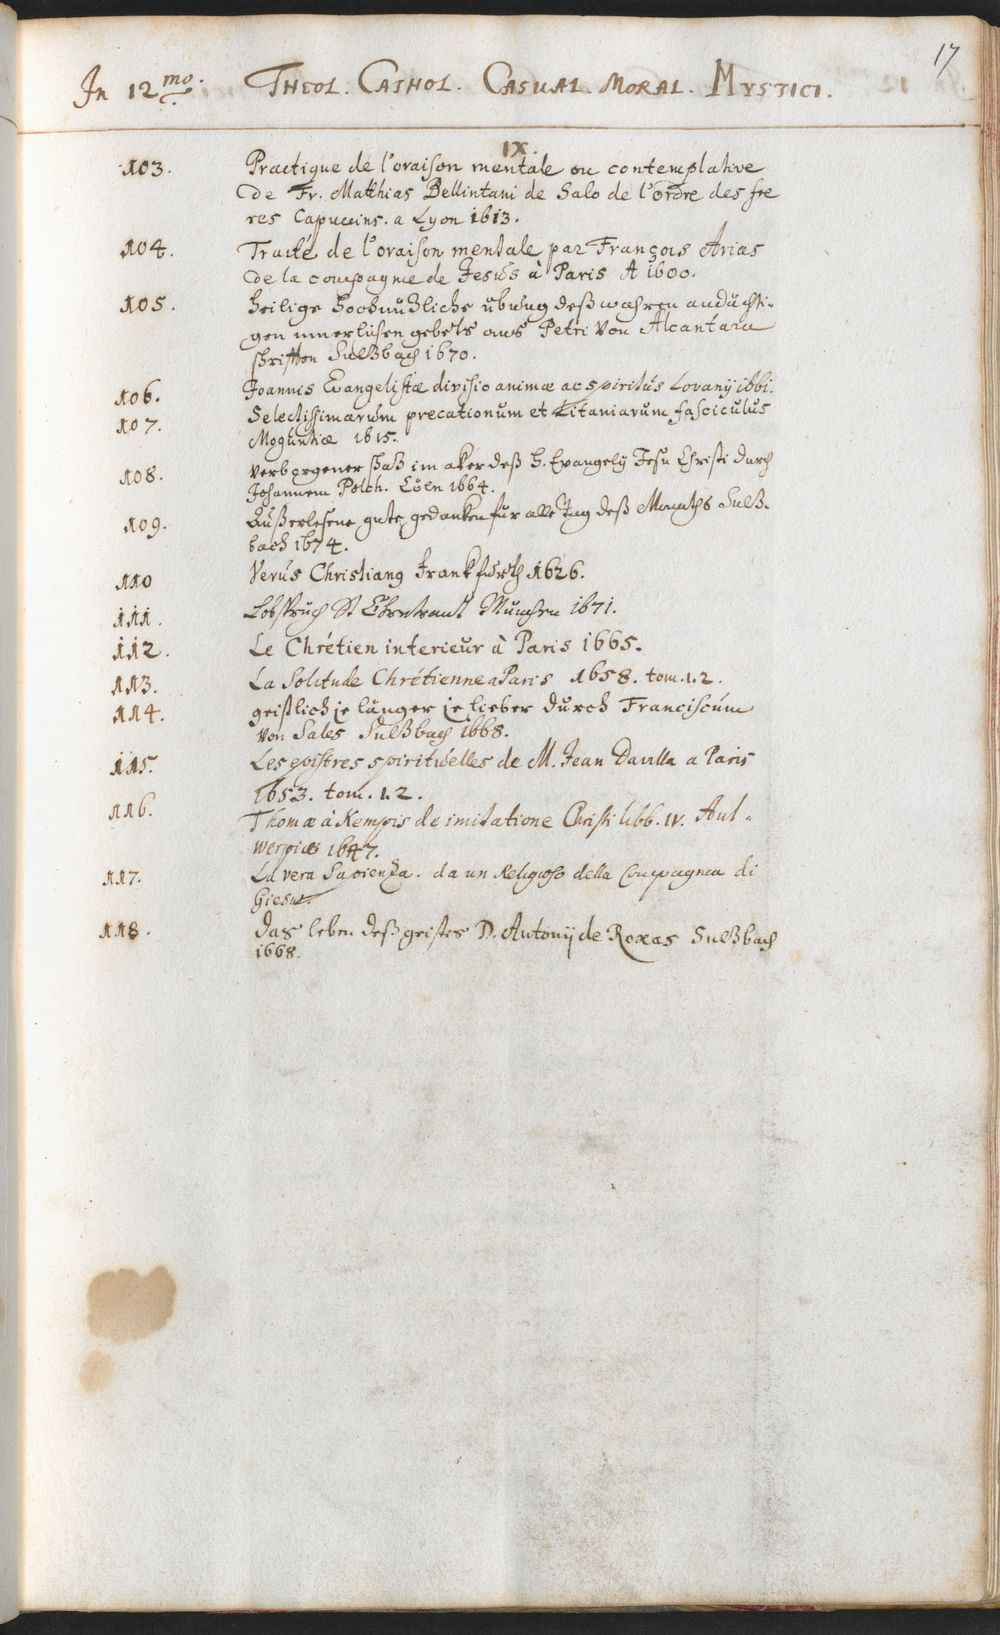 17
In 12mo. THEOL. CATHOL. CASUAL. MORAL. MYSTICI.
IX.
103. Practique de l'oraison mentale ou contemplative
de Fr. Matthias Bellintani de Salo de l'ordre des fre
res Capuccins. a Lyon 1613.
104. Traité de l'oraison mentale par François Arias
de la compagnie de Jesus à Paris A 1600.
105. Heilige Hochnutzliche ubung deß wahren andächti-
gen innerlichen gebets aus Petri von Alcantara
schrifften Sultzbach 1670.
106. Joannis Evangelistæ divisio animæ ac spiritus Lovanÿ 1661.
107. Selectissimarum precationum et Litaniarum fasciculus
Moguntiæ 1615.
108. Verborgener schatz im aker deß H. Evangelÿ Jesu Christi durch
Johannem Polch. Cölln 1664.
109. Außerlesene gute gedanken fur alle Tag deß Monaths Sultz-
bach 1674.
110 Verus Christianq Frankfurth 1626.
111. Lobspruch St Munchen 1671.
112. Le Chrétien interieur à Paris 1665.
113. La Solitude Chrétienne a Paris 1658. tom. 1. 2.
114. geistlich je länger je lieber durch Franciscum
von Sales Sultzbach 1668.
115. Les epistres spirituelles de M. Jean Davilla a Paris
1653. tom. 1. 2.
116. Thomæ à Kempis de imitatione Christi libb. IV. Ant-
werpiæ 1647.
117. La vera Sapienza. da un Religioso della Compagnia di
Giesu.
118. Das leben deß geistes D. Antonÿ de Roxas Sultzbach
1668.